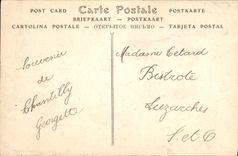 POST CARD Carte Postale POSTKARTE
BRIEFKAART - POSTKAART
CARTOLINA POSTALE - ОТКРЫТОЕ ПИСЬМО - TARJETA POSTAL
Souvenir
de
Chantilly
Georgette
Madame Tetard
Bistrote
Luzarches
S. et O